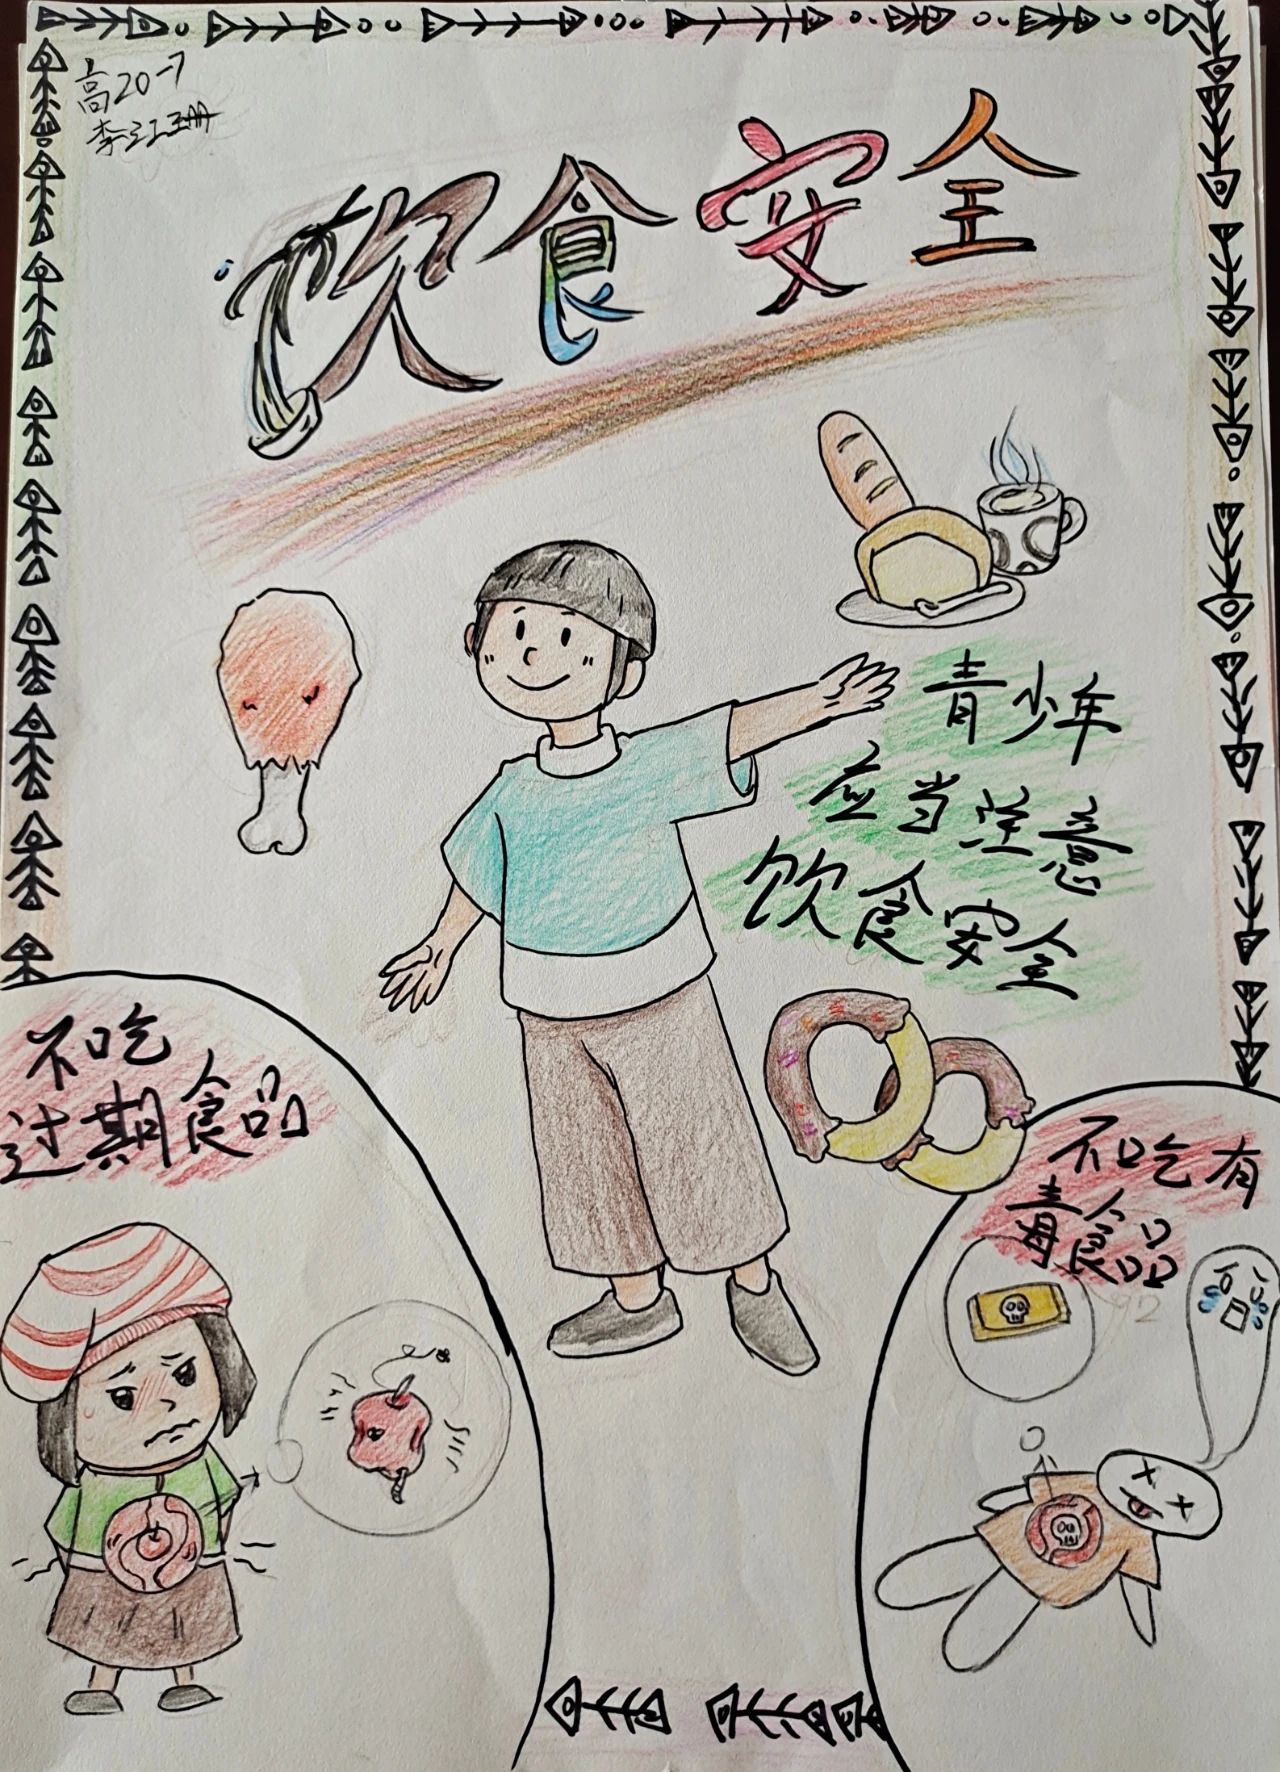 高20-7
饮食安全
青少年
应当注意
饮食安全
不吃
过期食品
不吃有
毒食品